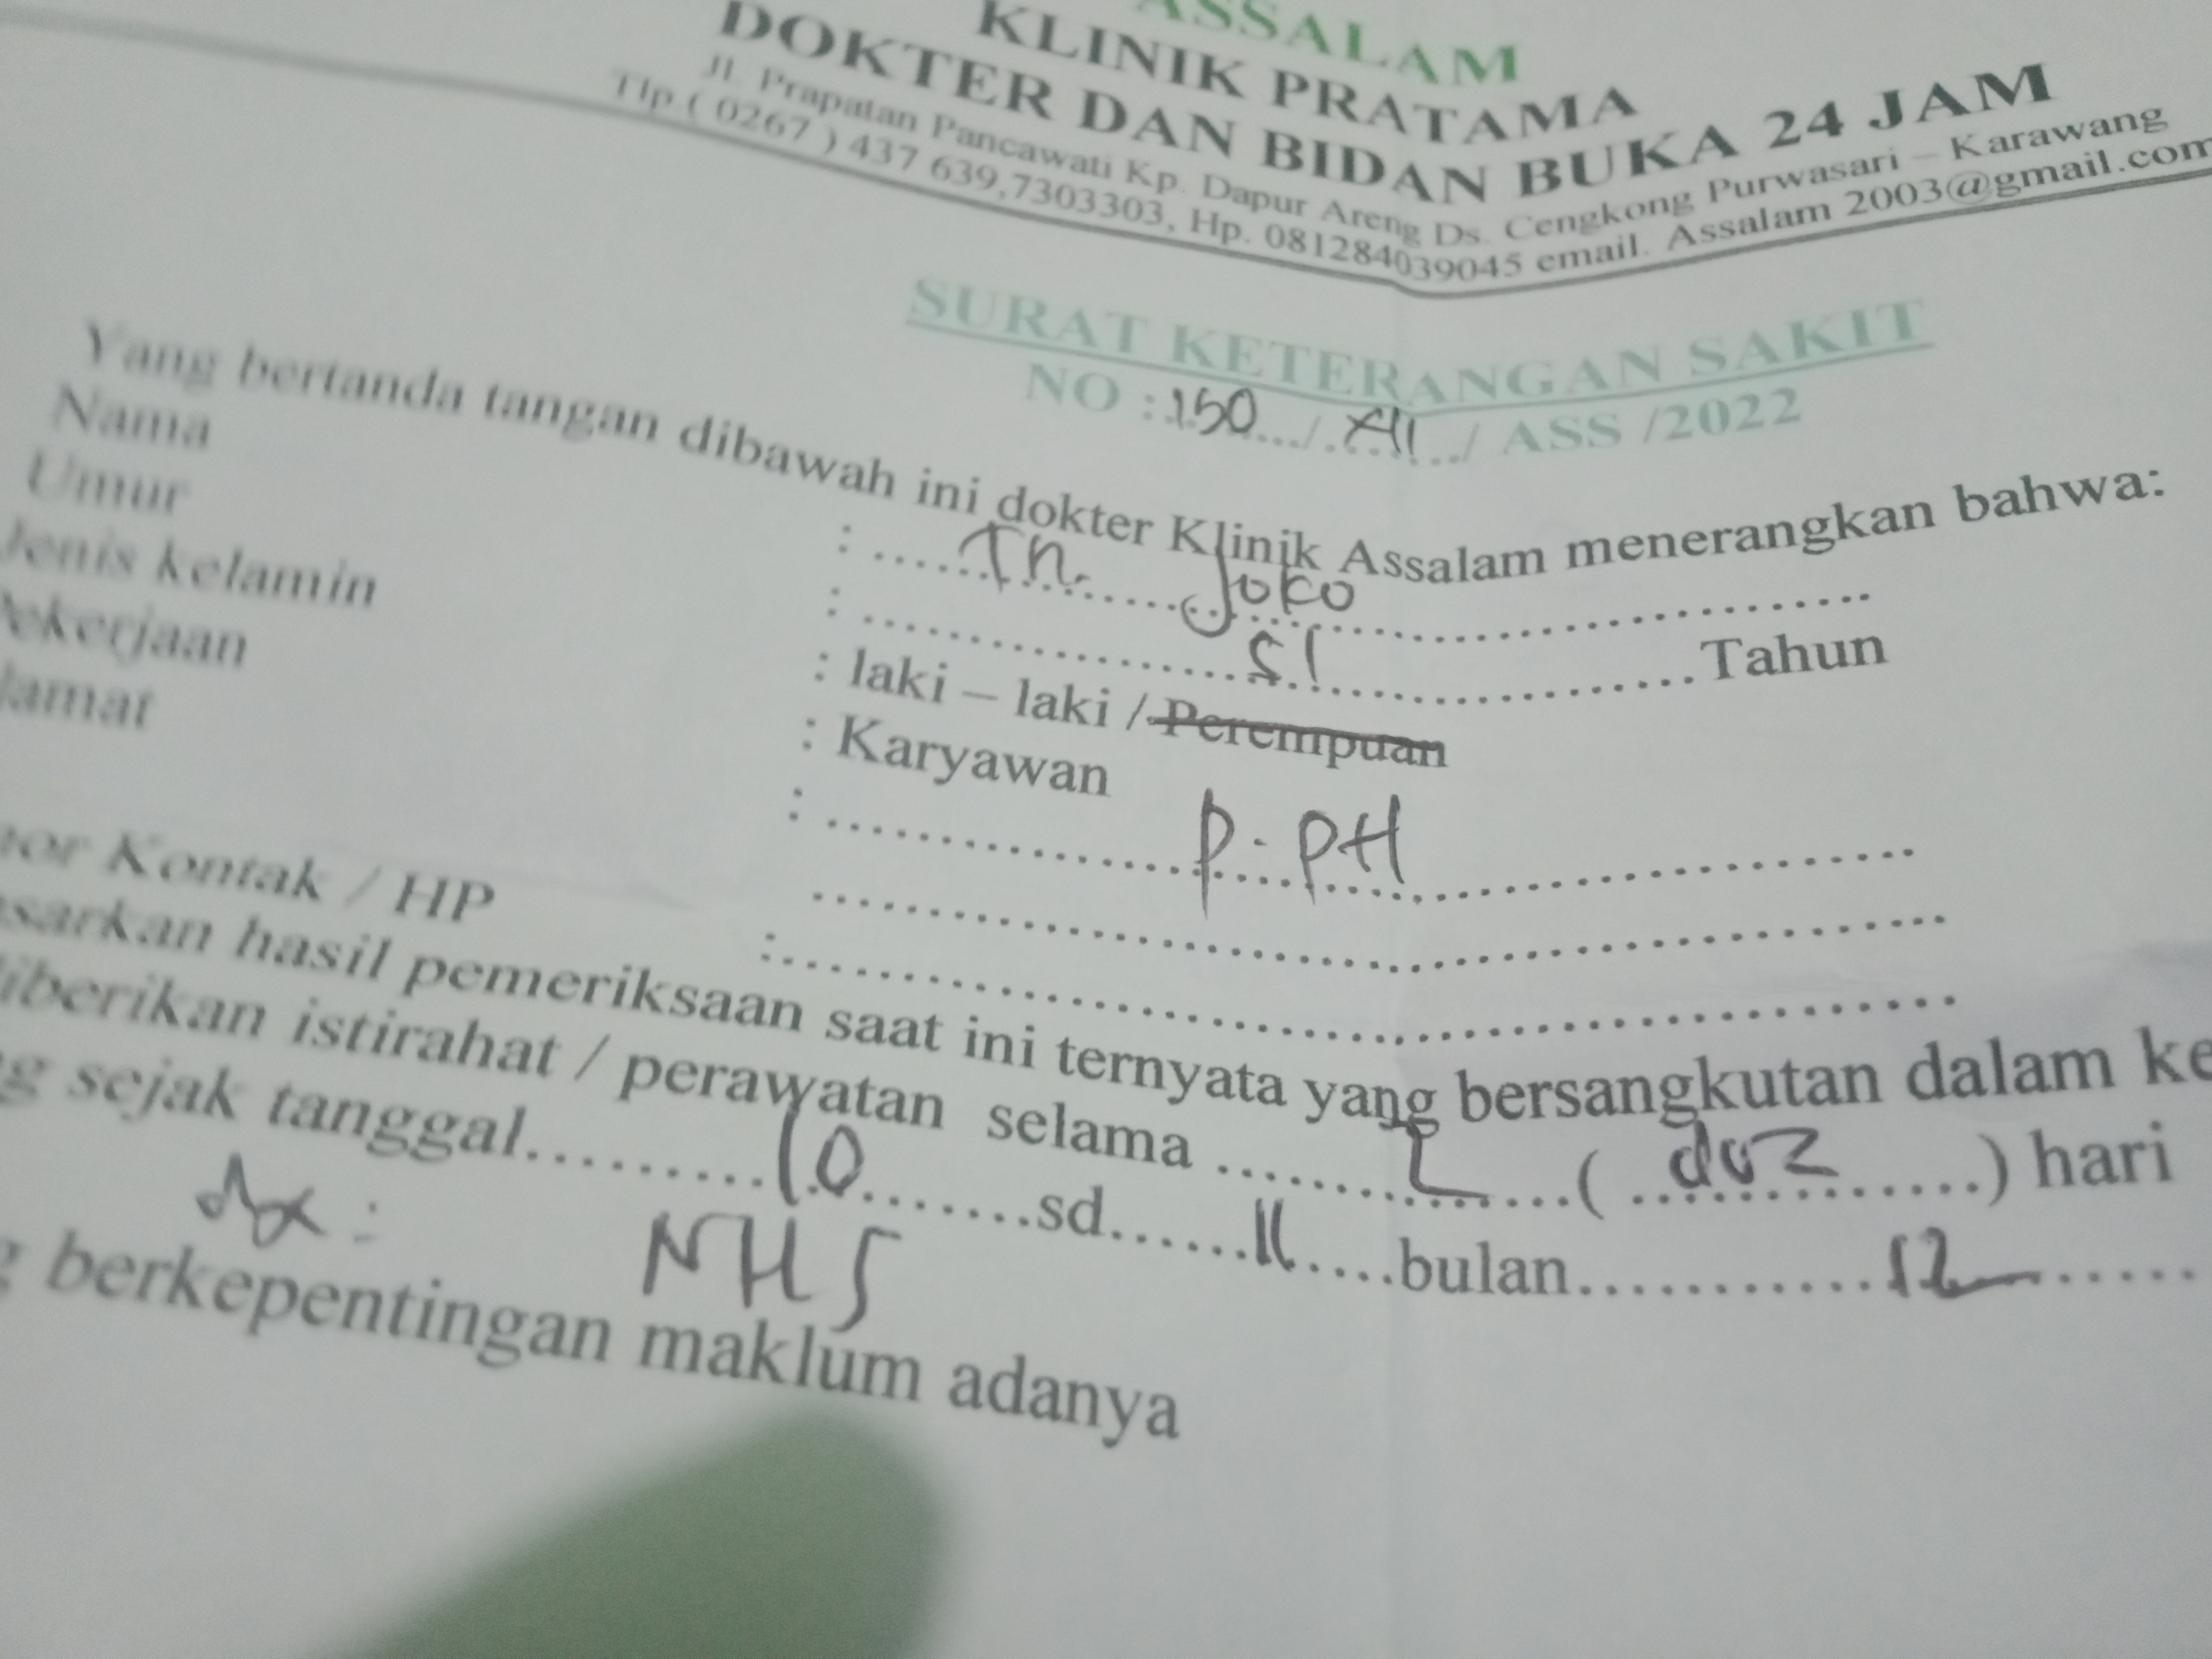 ASSALAM
KLINIK PRATAMA
DOKTER DAN BIDAN BUKA 24 JAM
Jl. Prapatan Pancawati Kp. Dapur Areng Ds. Cengkong Purwasari – Karawang
Tlp ( 0267 ) 437 639,7303303, Hp. 081284039045 email. Assalam 2003@gmail.com
SURAT KETERANGAN SAKIT
NO : 150 / XII / ASS /2022
Yang bertanda tangan dibawah ini dokter Klinik Assalam menerangkan bahwa:
Nama : Tn. Joko
Umur : 51 Tahun
Jenis kelamin : laki – laki / Perempuan
Pekerjaan : Karyawan
lamat : P. PH
tor Kontak / HP :
asarkan hasil pemeriksaan saat ini ternyata yang bersangkutan dalam ke
diberikan istirahat / perawatan selama 2 ( dua ) hari
g sejak tanggal 10 sd 11 bulan 12
dx : NHS
g berkepentingan maklum adanya